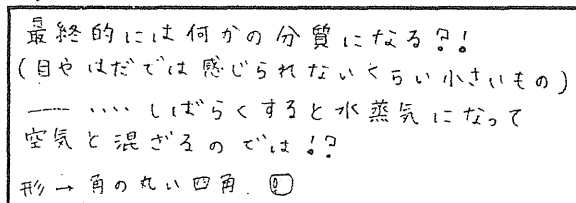 最終的には何かの分質になる?!
(目やはだでは感じられないくらい小さいもの)
—— ‥‥ しばらくすると水蒸気になって
空気と混ざるのでは!?
形→角の丸い四角.